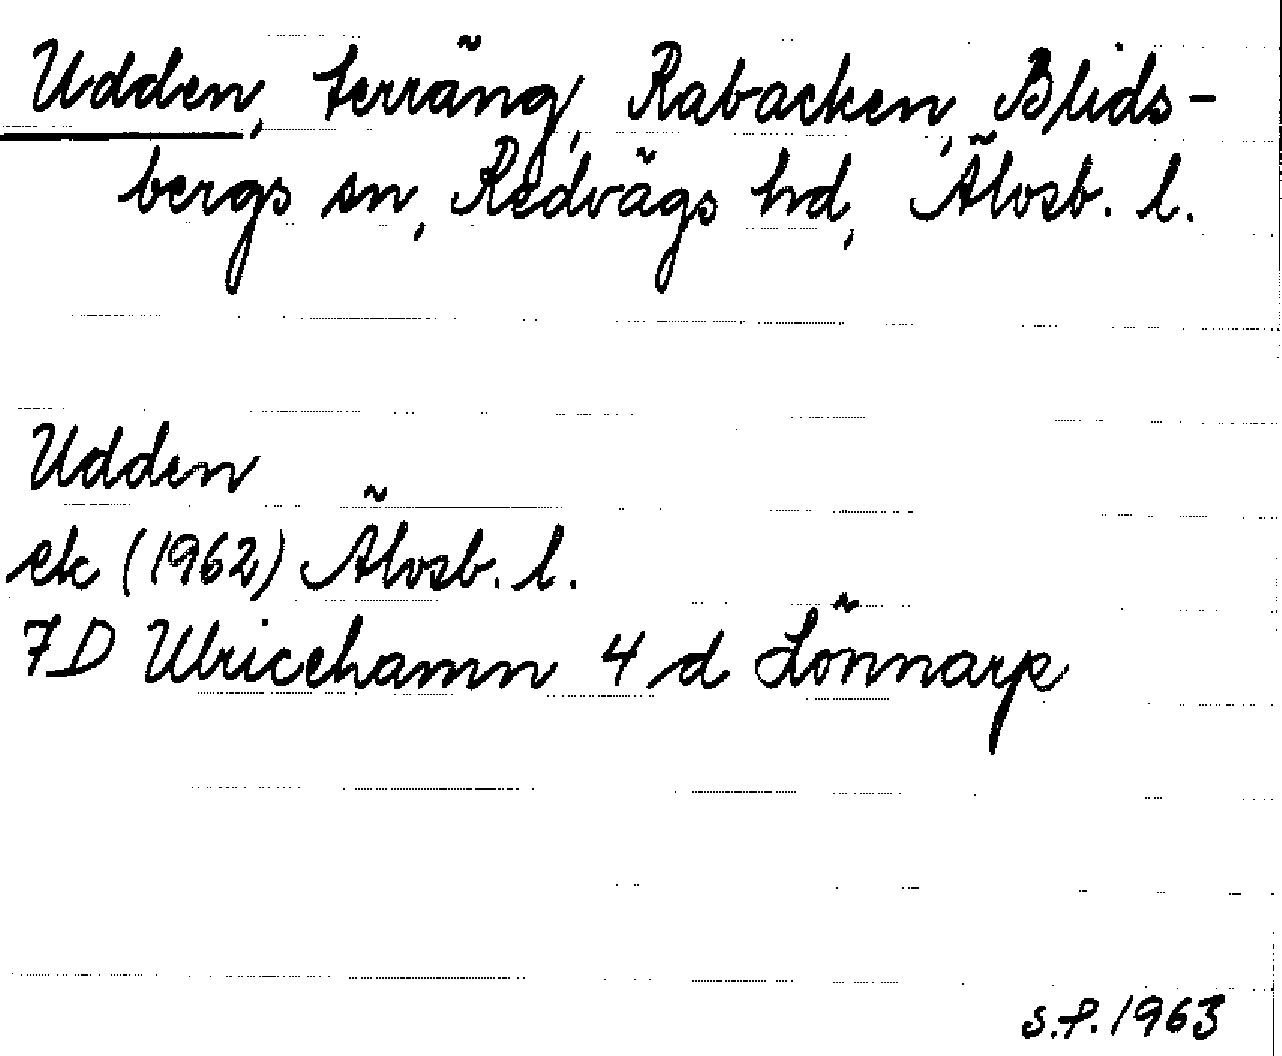 Udden, terräng, Rabacken, Blids-
bergs sn, Redvägs hd, Älvsb. l.
Udden
ek (1962) Älvsb. l.
7D Ulricehamn 4 d Lönnarp
S.P. 1963